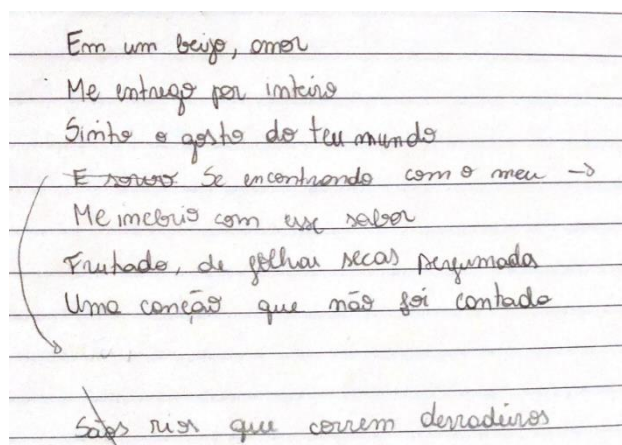 Em um beijo, amor
Me entrego por inteiro
Sinto o gosto do teu mundo
E sorvo Se encontrando com o meu →
Me inebrio com esse sabor
Frutado, de folhas secas perfumadas
Uma canção que não foi cantada
São rios que correm derradeiros